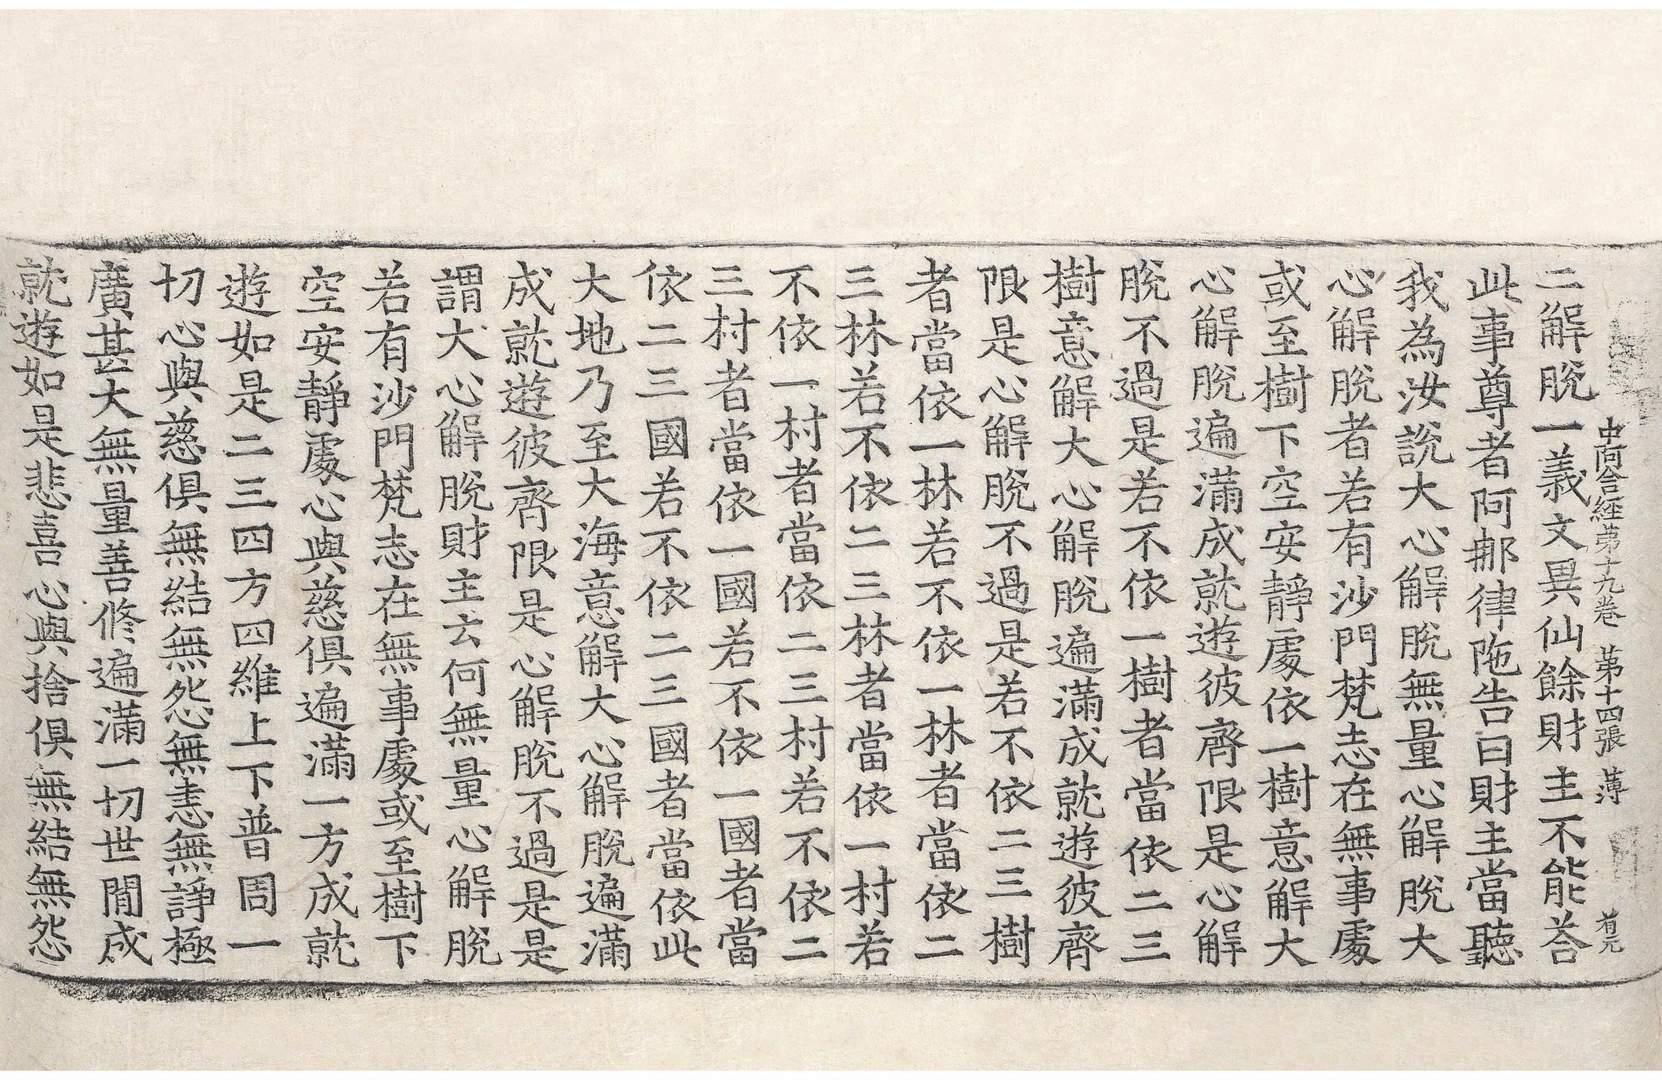 中阿含經第十九卷 第十四張 薄
二解脫一義文異仙餘財主不能荅
此事尊者阿那律陁告曰財主當聽
我為汝說大心解脫無量心解脫大
心解脫者若有沙門梵志在無事處
或至樹下空安靜處依一樹意解大
心解脫遍滿成就遊彼齊限是心解
脫不過是若不依一樹者當依二三
樹意解大心解脫遍滿成就遊彼齊
限是心解脫不過是若不依二三樹
者當依一林若不依一林者當依二
三林若不依二三林者當依一村若
不依一村者當依二三村若不依二
三村者當依一國若不依一國者當
依二三國若不依二三國者當依此
大地乃至大海意解大心解脫遍滿
成就遊彼齊限是心解脫不過是是
謂大心解脫財主云何無量心解脫
若有沙門梵志在無事處或至樹下
空安靜處心與慈俱遍滿一方成就
遊如是二三四方四維上下普周一
切心與慈俱無結無怨無恚無諍極
廣甚大無量善修遍滿一切世閒成
就遊如是悲喜心與捨俱無結無怨